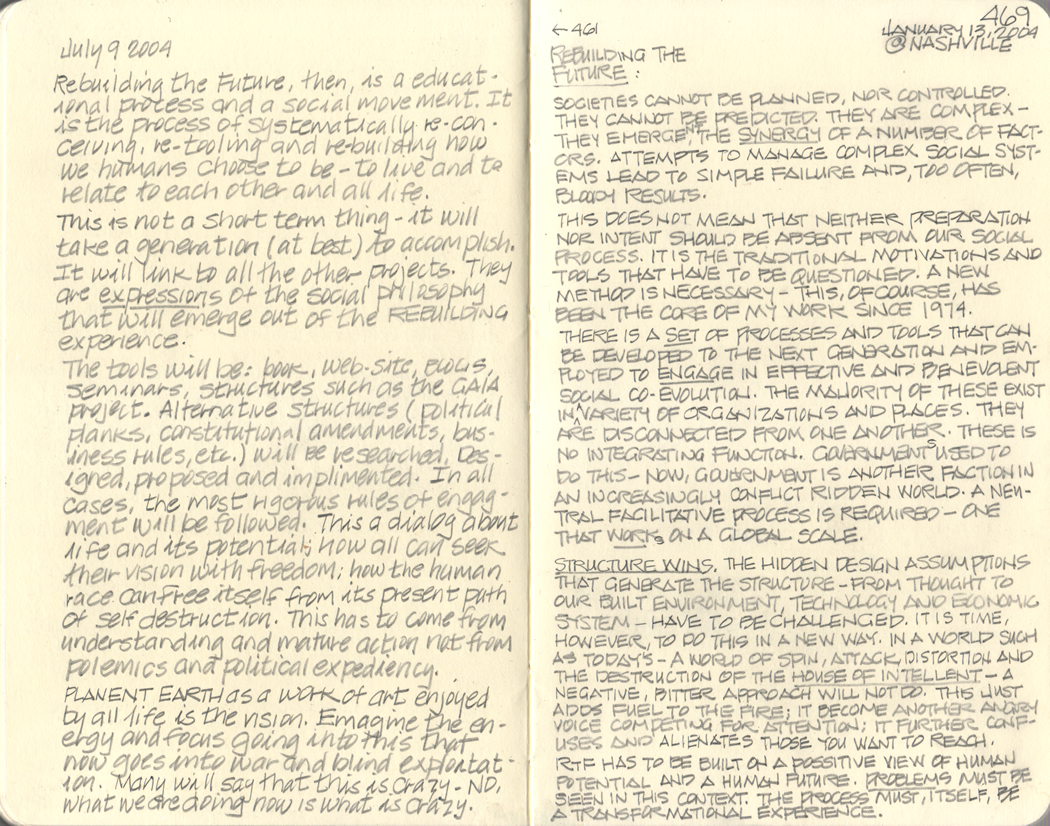 July 9 2004
Rebuilding the Future, then, is a educat-
ional process and a social movement. It
is the process of systematically re-con-
ceiving, re-tooling and re-building how
we humans choose to be - to live and to
relate to each other and all life.
This is not a short term thing - it will
take a generation (at best) to accomplish.
It will link to all the other projects. They
are expressions of the social philosophy
that will emerge out of the REBUILDING
experience.
The tools will be: book, web-site, BLOGS,
seminars, structures such as the GAIA
project. Alternative structures (political
planks, constitutional amendments, bus-
iness rules, etc.) will be researched, Des-
igned, proposed and implimented. In all
cases, the most rigorous rules of engag-
ment will be followed. This a dialog about
life and its potential; how all can seek
their vision with freedom; how the human
race can free itself from its present path
of self destruction. This has to come from
understanding and mature action not from
polemics and political expediency.
PLANENT EARTH as a work of art enjoyed
by all life is the vision. Emagine the en-
ergy and focus going into this that
now goes into war and blind exploitat-
ion. Many will say that this is crazy - NO,
what we are doing now is what is crazy.
469
← 461
JANUARY 13, 2004
@ NASHVILLE
REBUILDING THE
FUTURE :
SOCIETIES CANNOT BE PLANNED, NOR CONTROLLED.
THEY CANNOT BE PREDICTED. THEY ARE COMPLEX -
THEY EMERGENT, THE SYNERGY OF A NUMBER OF FACT-
ORS. ATTEMPTS TO MANAGE COMPLEX SOCIAL SYST-
EMS LEAD TO SIMPLE FAILURE AND, TOO OFTEN,
BLOODY RESULTS.
THIS DOES NOT MEAN THAT NEITHER PREPARATION
NOR INTENT SHOULD BE ABSENT FROM OUR SOCIAL
PROCESS. IT IS THE TRADITIONAL MOTIVATIONS AND
TOOLS THAT HAVE TO BE QUESTIONED. A NEW
METHOD IS NECESSARY - THIS, OF COURSE, HAS
BEEN THE CORE OF MY WORK SINCE 1974.
THERE IS A SET OF PROCESSES AND TOOLS THAT CAN
BE DEVELOPED TO THE NEXT GENERATION AND EM-
PLOYED TO ENGAGE IN EFFECTIVE AND BENEVOLENT
SOCIAL CO-EVOLUTION. THE MAJORITY OF THESE EXIST
IN VARIETY OF ORGANIZATIONS AND PLACES. THEY
ARE DISCONNECTED FROM ONE ANOTHER. THESE IS
NO INTEGRATING FUNCTION. GOVERNMENTS USED TO
DO THIS - NOW, GOVERNMENT IS ANOTHER FACTION IN
AN INCREASINGLY CONFLICT RIDDEN WORLD. A NEU-
TRAL FACILITATIVE PROCESS IS REQUIRED - ONE
THAT WORKS ON A GLOBAL SCALE.
STRUCTURE WINS. THE HIDDEN DESIGN ASSUMPTIONS
THAT GENERATE THE STRUCTURE - FROM THOUGHT TO
OUR BUILT ENVIRONMENT, TECHNOLOGY AND ECONOMIC
SYSTEM - HAVE TO BE CHALLENGED. IT IS TIME,
HOWEVER, TO DO THIS IN A NEW WAY. IN A WORLD SUCH
AS TODAY'S - A WORLD OF SPIN, ATTACK, DISTORTION AND
THE DESTRUCTION OF THE HOUSE OF INTELLENT - A
NEGATIVE, BITTER APPROACH WILL NOT DO. THIS JUST
ADDS FUEL TO THE FIRE; IT BECOME ANOTHER ANGRY
VOICE COMPETING FOR ATTENTION; IT FURTHER CONF-
USES AND ALIENATES THOSE YOU WANT TO REACH.
RTF HAS TO BE BUILT ON A POSSITIVE VIEW OF HUMAN
POTENTIAL AND A HUMAN FUTURE. PROBLEMS MUST BE
SEEN IN THIS CONTEXT. THE PROCESS MUST, ITSELF, BE
A TRANSFORMATIONAL EXPERIENCE.